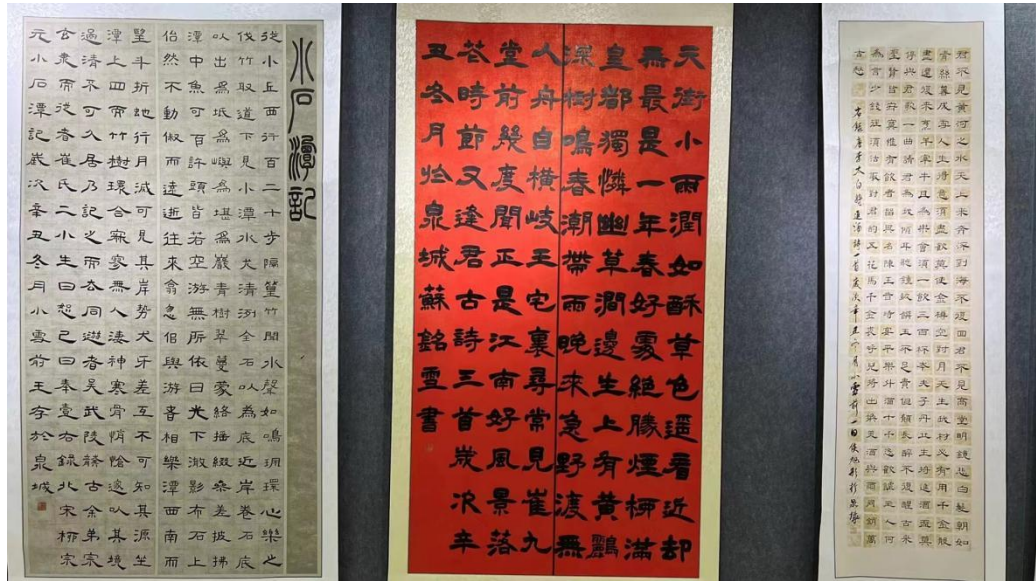 小石潭記
從小丘西行百二十步隔篁竹聞水聲如鳴珮環心樂之
伐竹取道下見小潭水尤清冽全石以為底近岸卷石底
以出為坻為嶼為堪為巖青樹翠蔓蒙絡搖綴參差披拂
潭中魚可百許頭皆若空游無所依日光下澈影布石上
佁然不動俶而遠逝往來翕忽佀與游者相樂潭西南而
望斗折蛇行明滅可見其岸勢犬牙差互不可知其源坐
潭上四面竹樹環合寂寥無人淒神寒骨悄愴邃以其境
過清不可久居乃記之而去同遊者吳武陵龔古余弟宗
玄隸而從者崔氏二小生曰恕己曰奉壹右錄北宋柳宗
元小石潭記歲次辛丑冬月小雪前王存於泉城
天街小雨潤如酥草色遥看近却
無最是一年春好處絕勝煙柳滿
皇都獨憐幽草澗邊生上有黃鸝
深樹鳴春潮帶雨晚來急野渡無
人舟自橫岐王宅裏尋常見崔九
堂前幾度聞正是江南好風景落
花時節又逢君古詩三首歲次辛
丑冬月於泉城蘇銘雪書
君不見黃河之水天上來奔流到海不復回君不見高堂明鏡悲白髮朝如
青絲暮成雪人生得意須盡歡莫使金樽空對月天生我材必有用千金散
盡還復來烹羊宰牛且為樂會須一飲三百杯岑夫子丹丘生將進酒杯莫
停與君歌一曲請君為我傾耳聽鐘鼓饌玉不足貴但願長醉不復醒古來
聖賢皆寂寞惟有飲者留其名陳王昔時宴平樂斗酒十千恣歡謔主人何
為言少錢徑須沽取對君酌五花馬千金裘呼兒將出換美酒與爾同銷萬
古愁
右錄唐李太白將進酒詩一首歲次辛丑冬月小雪前一日